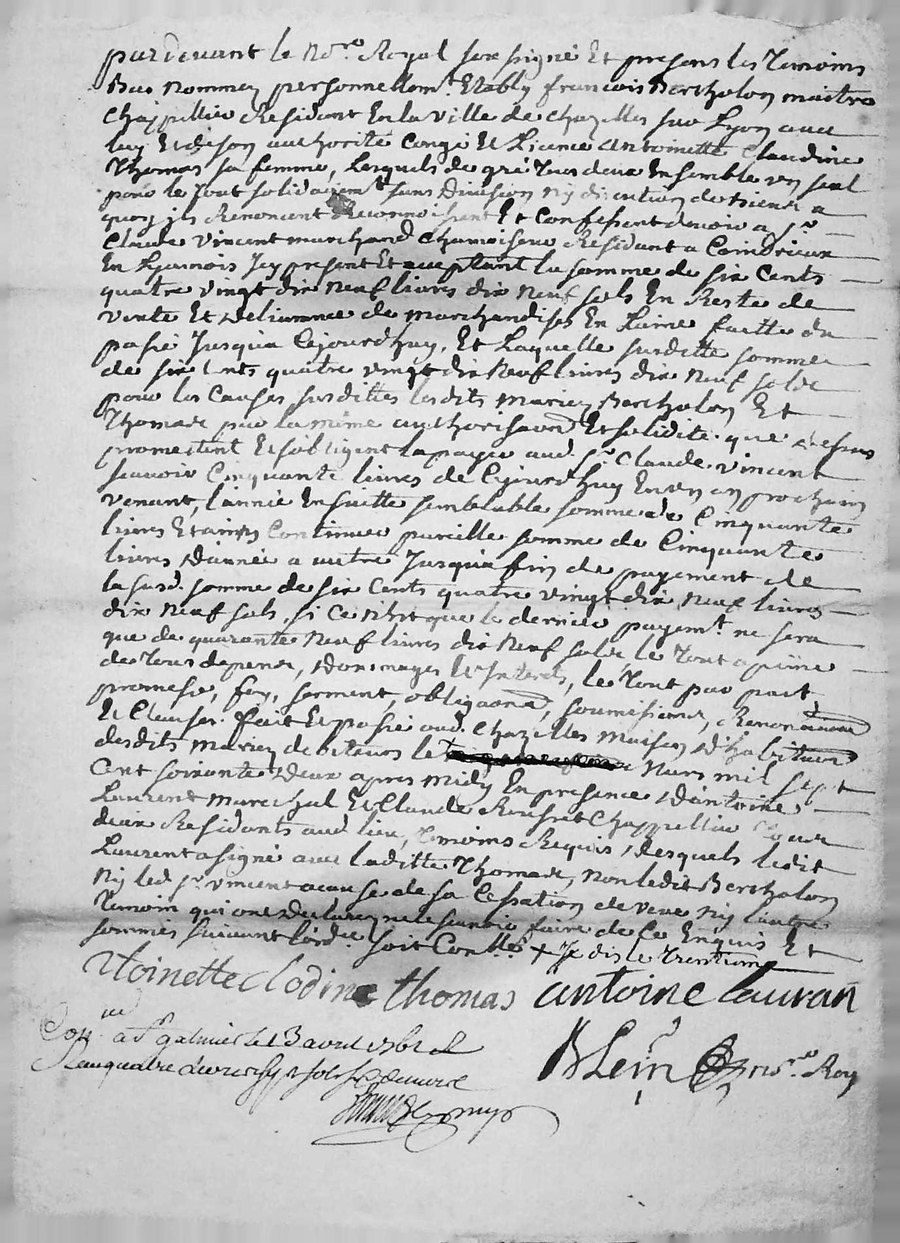 pardevant le No.re Royal soussigné Et presens les temoins
Bas nommez personnellem.t Etably francois Bertholon maitre
chappellier Residant En la ville de chazelles sur Lyon avec
luy Et de son authorité Congé Et Licence antoinette Claudine
Thomas sa femme, Lesquels de gré tous deux Ensemble un seul
pour le tout solidairem.t sans Division ny discution de biens a
quoy ils Renoncent Reconnoissent Et Confessent devoir a s.r
Claude vincent marchand chamoiseur Residant a Condrieux
En Lyonnois Icy present Et acceptant la somme de six Cents
quatre vingt dix Neuf livres dix Neuf sols En Reste de
vente Et delivrance de marchandises En Laine faitte du
passé Jusqua Cejourdhuy, Et Laquelle susditte somme
de six Cents quatre vingt dix Neuf livres dix Neuf sols
pour les Causes susdittes lesdits mariez Bertholon Et
Thomas par la même authorisaon Et solidité que dessus
promettent Et sobligent la payer aud. s.r Claude vincent
scavoir Cinquante livres de Cejourdhuy En un an prochain
venant, lannée En suitte semblable somme de Cinquante
livres Et ainsy Continuer pareille somme de Cinquante
livres dannée a autre Jusqua fin de payement de
la susd. somme de six Cents quatre vingt dix Neuf livres
dix Neuf sols, si Ce n'est que le dernier payem.t ne sera
que de quarante Neuf livres dix Neuf sols le tout a peine
de tous depens, dommages Et Interets, le tout par part
promesse, foy, serment, obligaons, soumissions, Renonciaons
Et Clauses. fait Et passé aud. Chazelles maison d'habitaon
desdits mariez debiteurs le + mars mil sept
Cent soixante deux apres midy En presence d'antoine
Laurent marechal Et Claude Chappellier tous
deux Residants aud. lieu, temoins Requis, desquels ledit
Laurent a signé avec laditte Thomas, Non ledit Bertholon
Ny led. s.r vincent a cause de sa Cessation de veue Ny lautre
temoin qui ont declaré ne le scavoir faire de Ce Enquis Et
sommés suivant lordre soit Conllé + Je dis le trentieme
Utoinette clodine thomas antoine lauran
No.re Roy
Con.llé a St galmier le 13 avril 1762